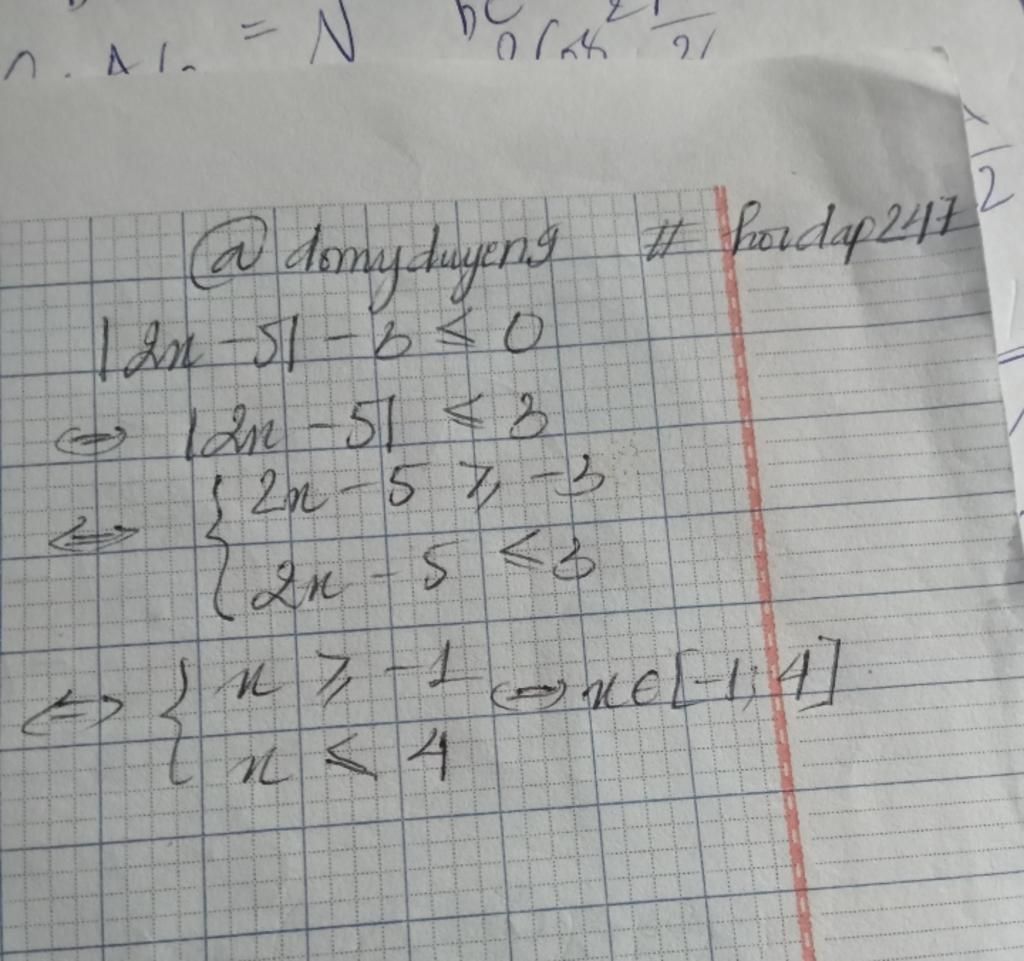 = N
2
@domyduyeng # hoidap247
|2x - 5| - 3 ≤ 0
⇔ |2x - 5| ≤ 3
⇔ { 2x - 5 ≥ -3
2x - 5 ≤ 3
⇔ { x ≥ -1 ⇔ x ∈ [-1; 4]
x ≤ 4